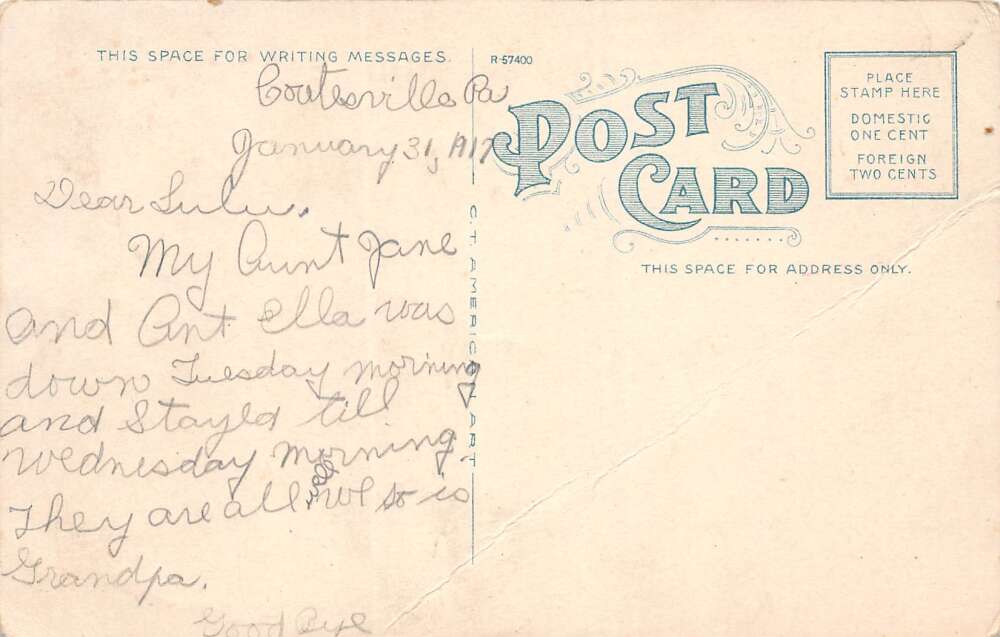 THIS SPACE FOR WRITING MESSAGES.
Coutesville Pa
January 31, 1917
Dear Lulu.
My Aunt Jane
and Ant Ella was
down Tuesday morning
and Stayed till
Wednesday morning.
They are all well so is
Grandpa.
Good Bye
C. T. AMERICAN ART
R-57400
POST
CARD
PLACE
STAMP HERE
DOMESTIC
ONE CENT
FOREIGN
TWO CENTS
THIS SPACE FOR ADDRESS ONLY.